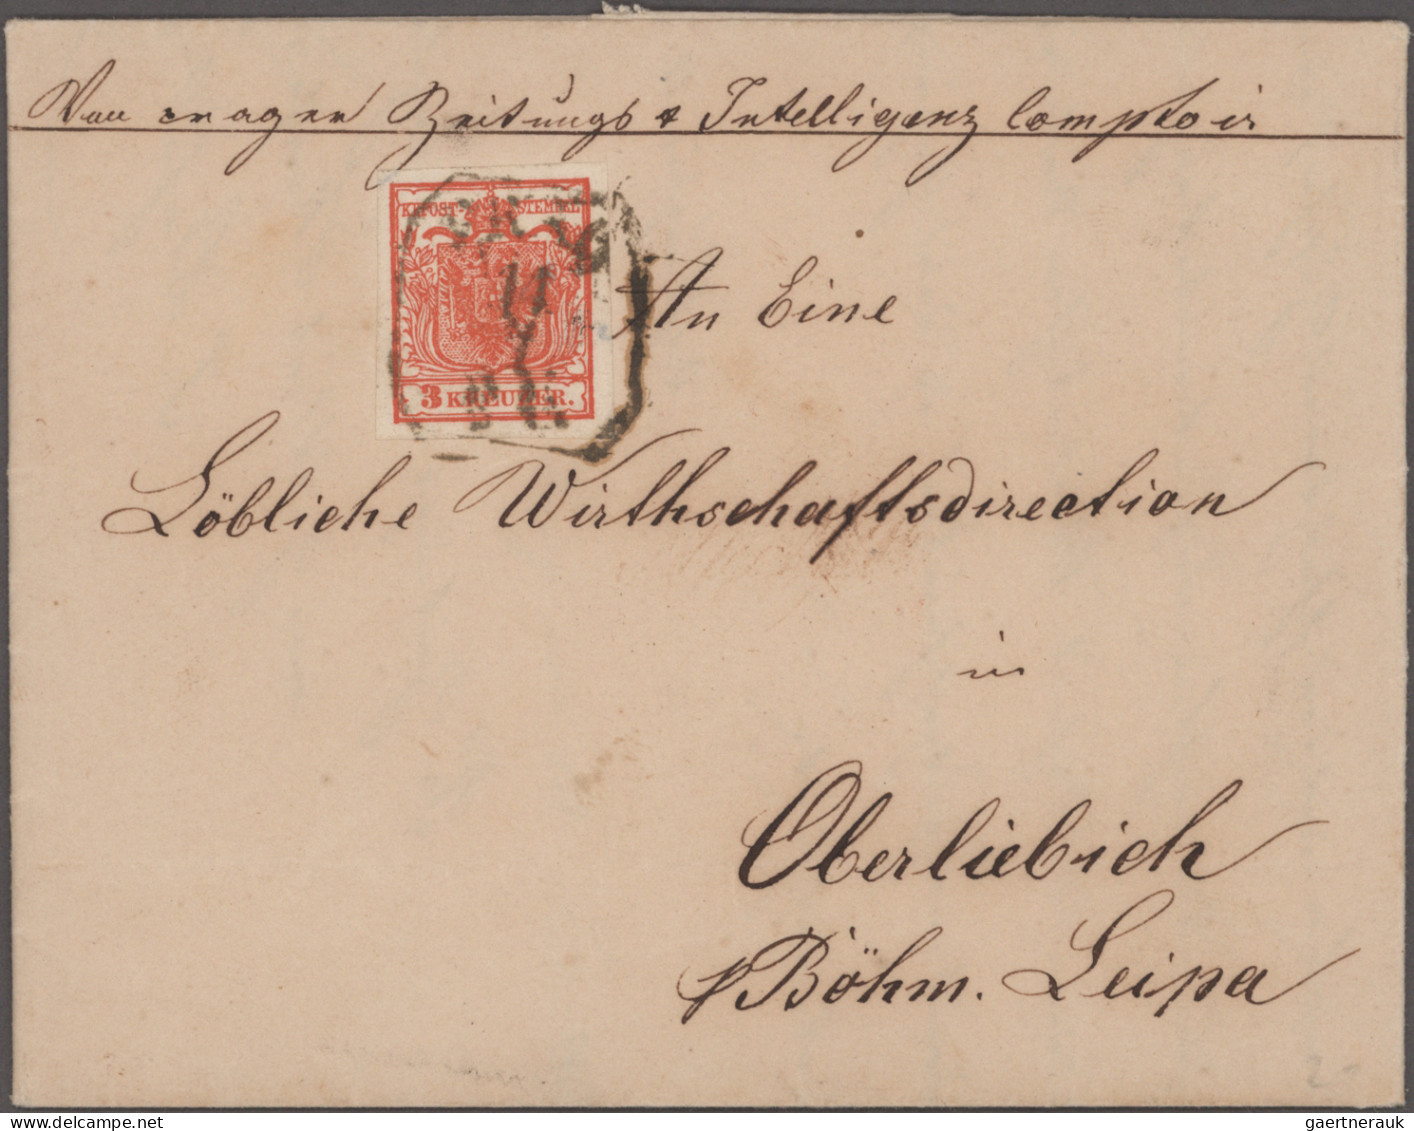 Von Prager Zeitungs & Intelligenz Comptoir
KKPOST-STEMPEL
PRAG
11
3 KREUZER.
An Eine
Löbliche Wirthschaftsdirection
in
Oberliebich
p/ Böhm. Leipa
gaertnerauk